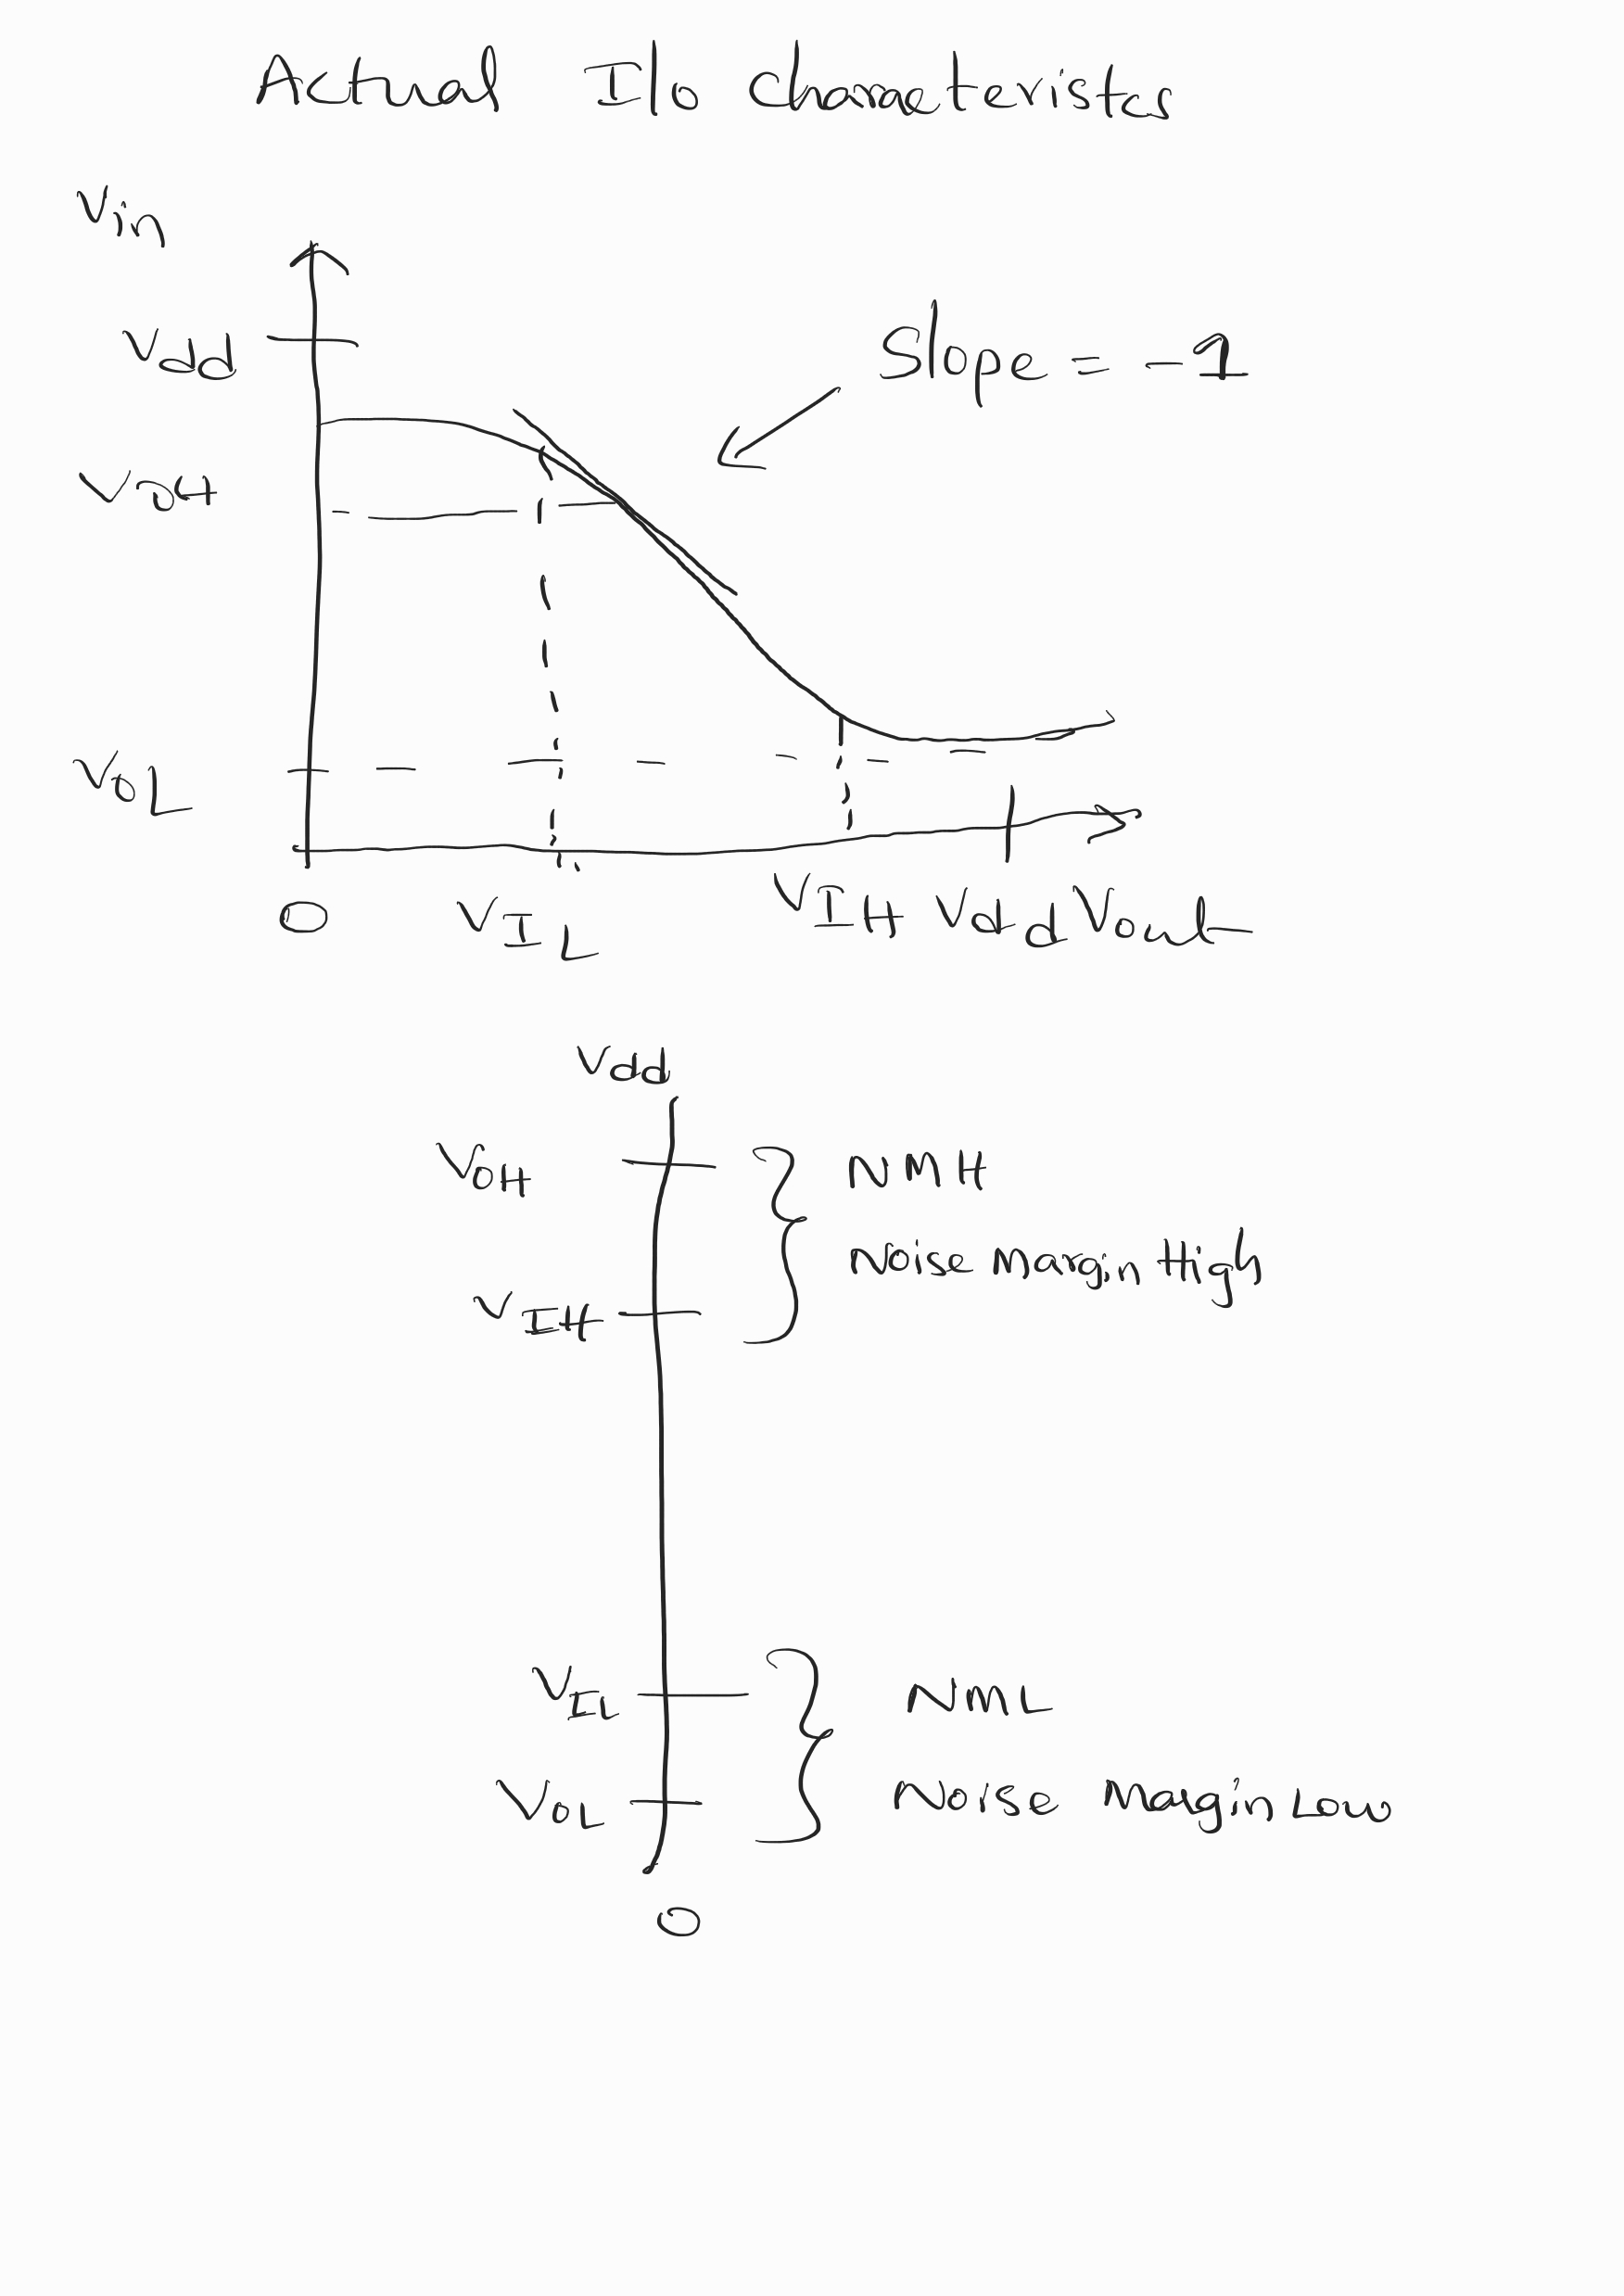 Actual I/o characteristcs
Vin
Vdd
Slope = -1
VOH
VOL
0 VIL VIH Vdd Vout
Vdd
VOH
NMH
Noise Margin High
VIH
VIL
NML
VOL
Noise Margin Low
0